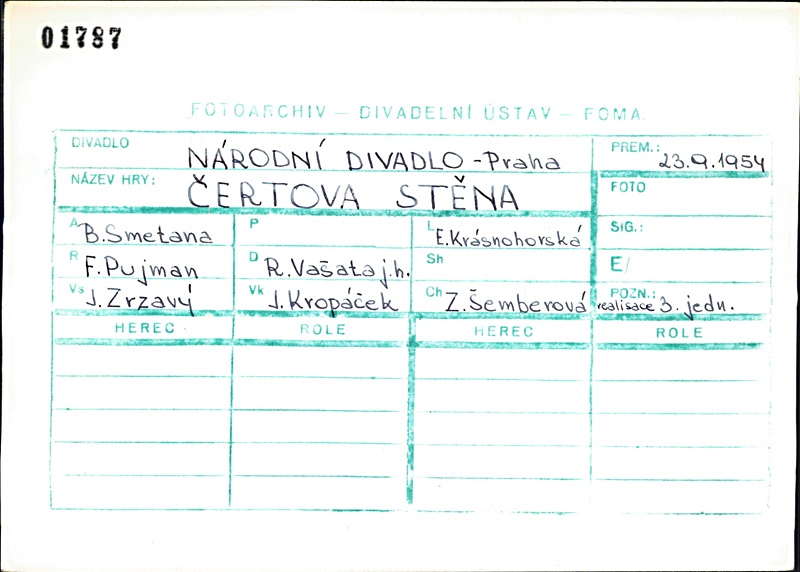 01787
FOTOARCHIV – DIVADELNÍ ÚSTAV – FOMA
DIVADLO NÁRODNÍ DIVADLO - Praha PREM.: 23.9.1954
NÁZEV HRY: ČERTOVA STĚNA FOTO
A B.Smetana P L E.Krásnohorská SIG.:
R F.Pujman D R.Vašata j.h. Sh E/
Vs J.Zrzavý Vk J.Kropáček Ch Z.Šemberová POZN.: realisace 3. jedn.
HEREC ROLE HEREC ROLE